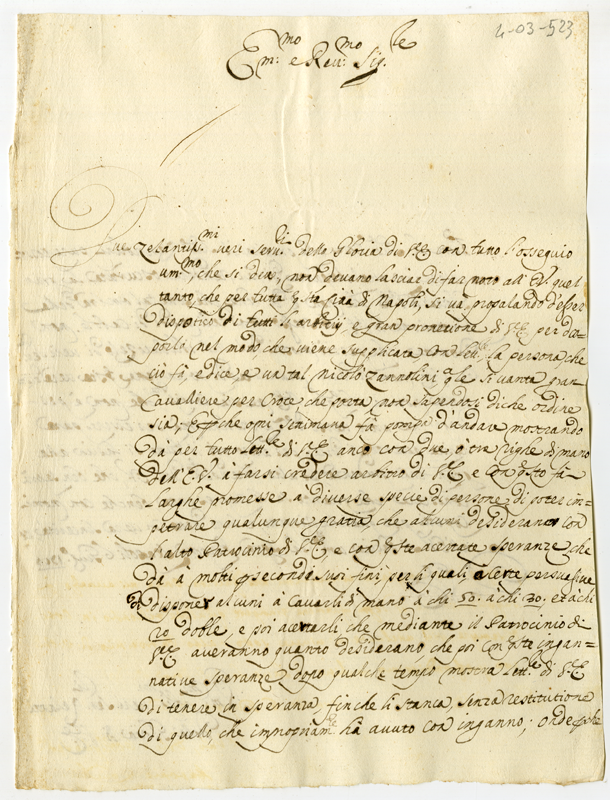 4-03-523
Em:mo e Reu:mo Sig.le
Due zelantiss.mi ueri seru.ri della Gloria di V.E. con tutto l'ossequio
um:mo, che si deue, non deuano lasciar di far noto all'E.V. quel
tanto, che per tutta q.sta Città di Napoli, si uà propalando d'esser
dispotico di tutti li arbitrij, e gran protettione di V.E. per dis=
porla nel modo che uiene supplicata con lett.re la persona, che
ciò fà, e dice, e un tal Nicolò Zannolini q.le si uanta gran
Caualliere per Croce che porta non sapendosi di che ordine
sia; E p che ogni settimana fà pompa d'andare mostrando
dà per tutto lett.re di V.E. anco con due, ò tre righe di mano
dell'E.V. à farsi credere arbitro di V.E. e con q.sto fà
larghe promesse a diuerse spetie di persone di poter im=
petrare qualunque gratia che alcuni desiderano con
l'alto Patrocinio di V.E. e con q.ste accertate speranze che
dà a molti secondo suoi fini per li quali acerte persuasiue
dispone alcuni à Cauarli di mano à chi 50. à chi 30. et à chi
20 doble, e poi acertarli che mediante il Patrocinio di
V.E. aueranno quanto desiderano, che poi con q.ste ingan=
natiue speranze dopo qualche tempo mostra lett.re di V.E.
di tenere in speranza finche li stanca, senza restitutione
di quello, che impropriam.te hà auuto con inganno; onde